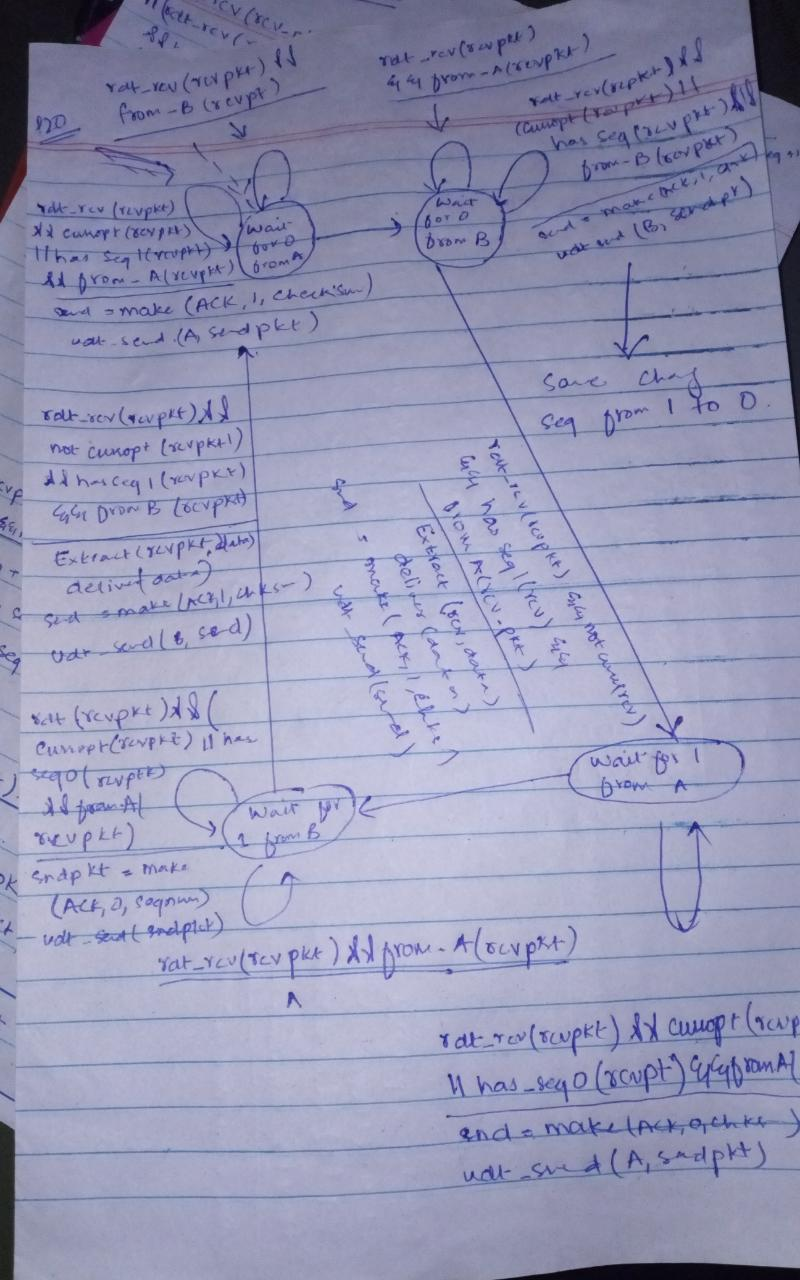 rdt_rcv(rcvpkt) &&
from-B (rcvpt)
rdt_rcv(rcvpkt)
&& from-A(rcvpkt)
rdt_rcv(rcpkt) &&
(curropt(rcvpkt) ||
has seq(rcvpkt) &&
from-B(rcvpkt)
snd = make(Ack, 1, chk)
udt snd (B, sendpkt)
rdt_rcv(rcvpkt)
&& curropt(rcvpkt)
|| has seq1(rcvpkt)
&& from-A(rcvpkt)
snd = make (ACK, 1, checksum)
udt-send (A, sendpkt)
Wait
for 0
from A
Wait
for 0
from B
Same chag
seq from 1 to 0.
rdt_rcv(rcvpkt) &&
not curropt (rcvpkt)
&& has seq 1 (rcvpkt)
&& from B (rcvpkt)
Extract(rcvpkt, data)
deliver(data)
snd = make(Ack, 1, chksm)
udt_send(B, snd)
rdt_rcv(rcvpkt) && not curr(rcv)
&& has seq 1 (rcv) &&
from A(rcv-pkt)
Extract (rcv, data)
deliver (data)
snd = make( ack, 1, chks)
udt send(snd)
rdt (rcvpkt) && (
curropt(rcvpkt) || has
seq0(rcvpkt)
&& from A(
rcvpkt)
sndpkt = make
(ACK, 0, seqnum)
udt-send(sndpkt)
Wait for
1 from B
Wait for 1
from A
rdt_rcv(rcvpkt) && from-A(rcvpkt)
Λ
rdt_rcv(rcvpkt) && curropt(rcvp
|| has_seq0(rcvpt) && from A(
snd = make(Ack, 0, chks)
udt_snd(A, sndpkt)